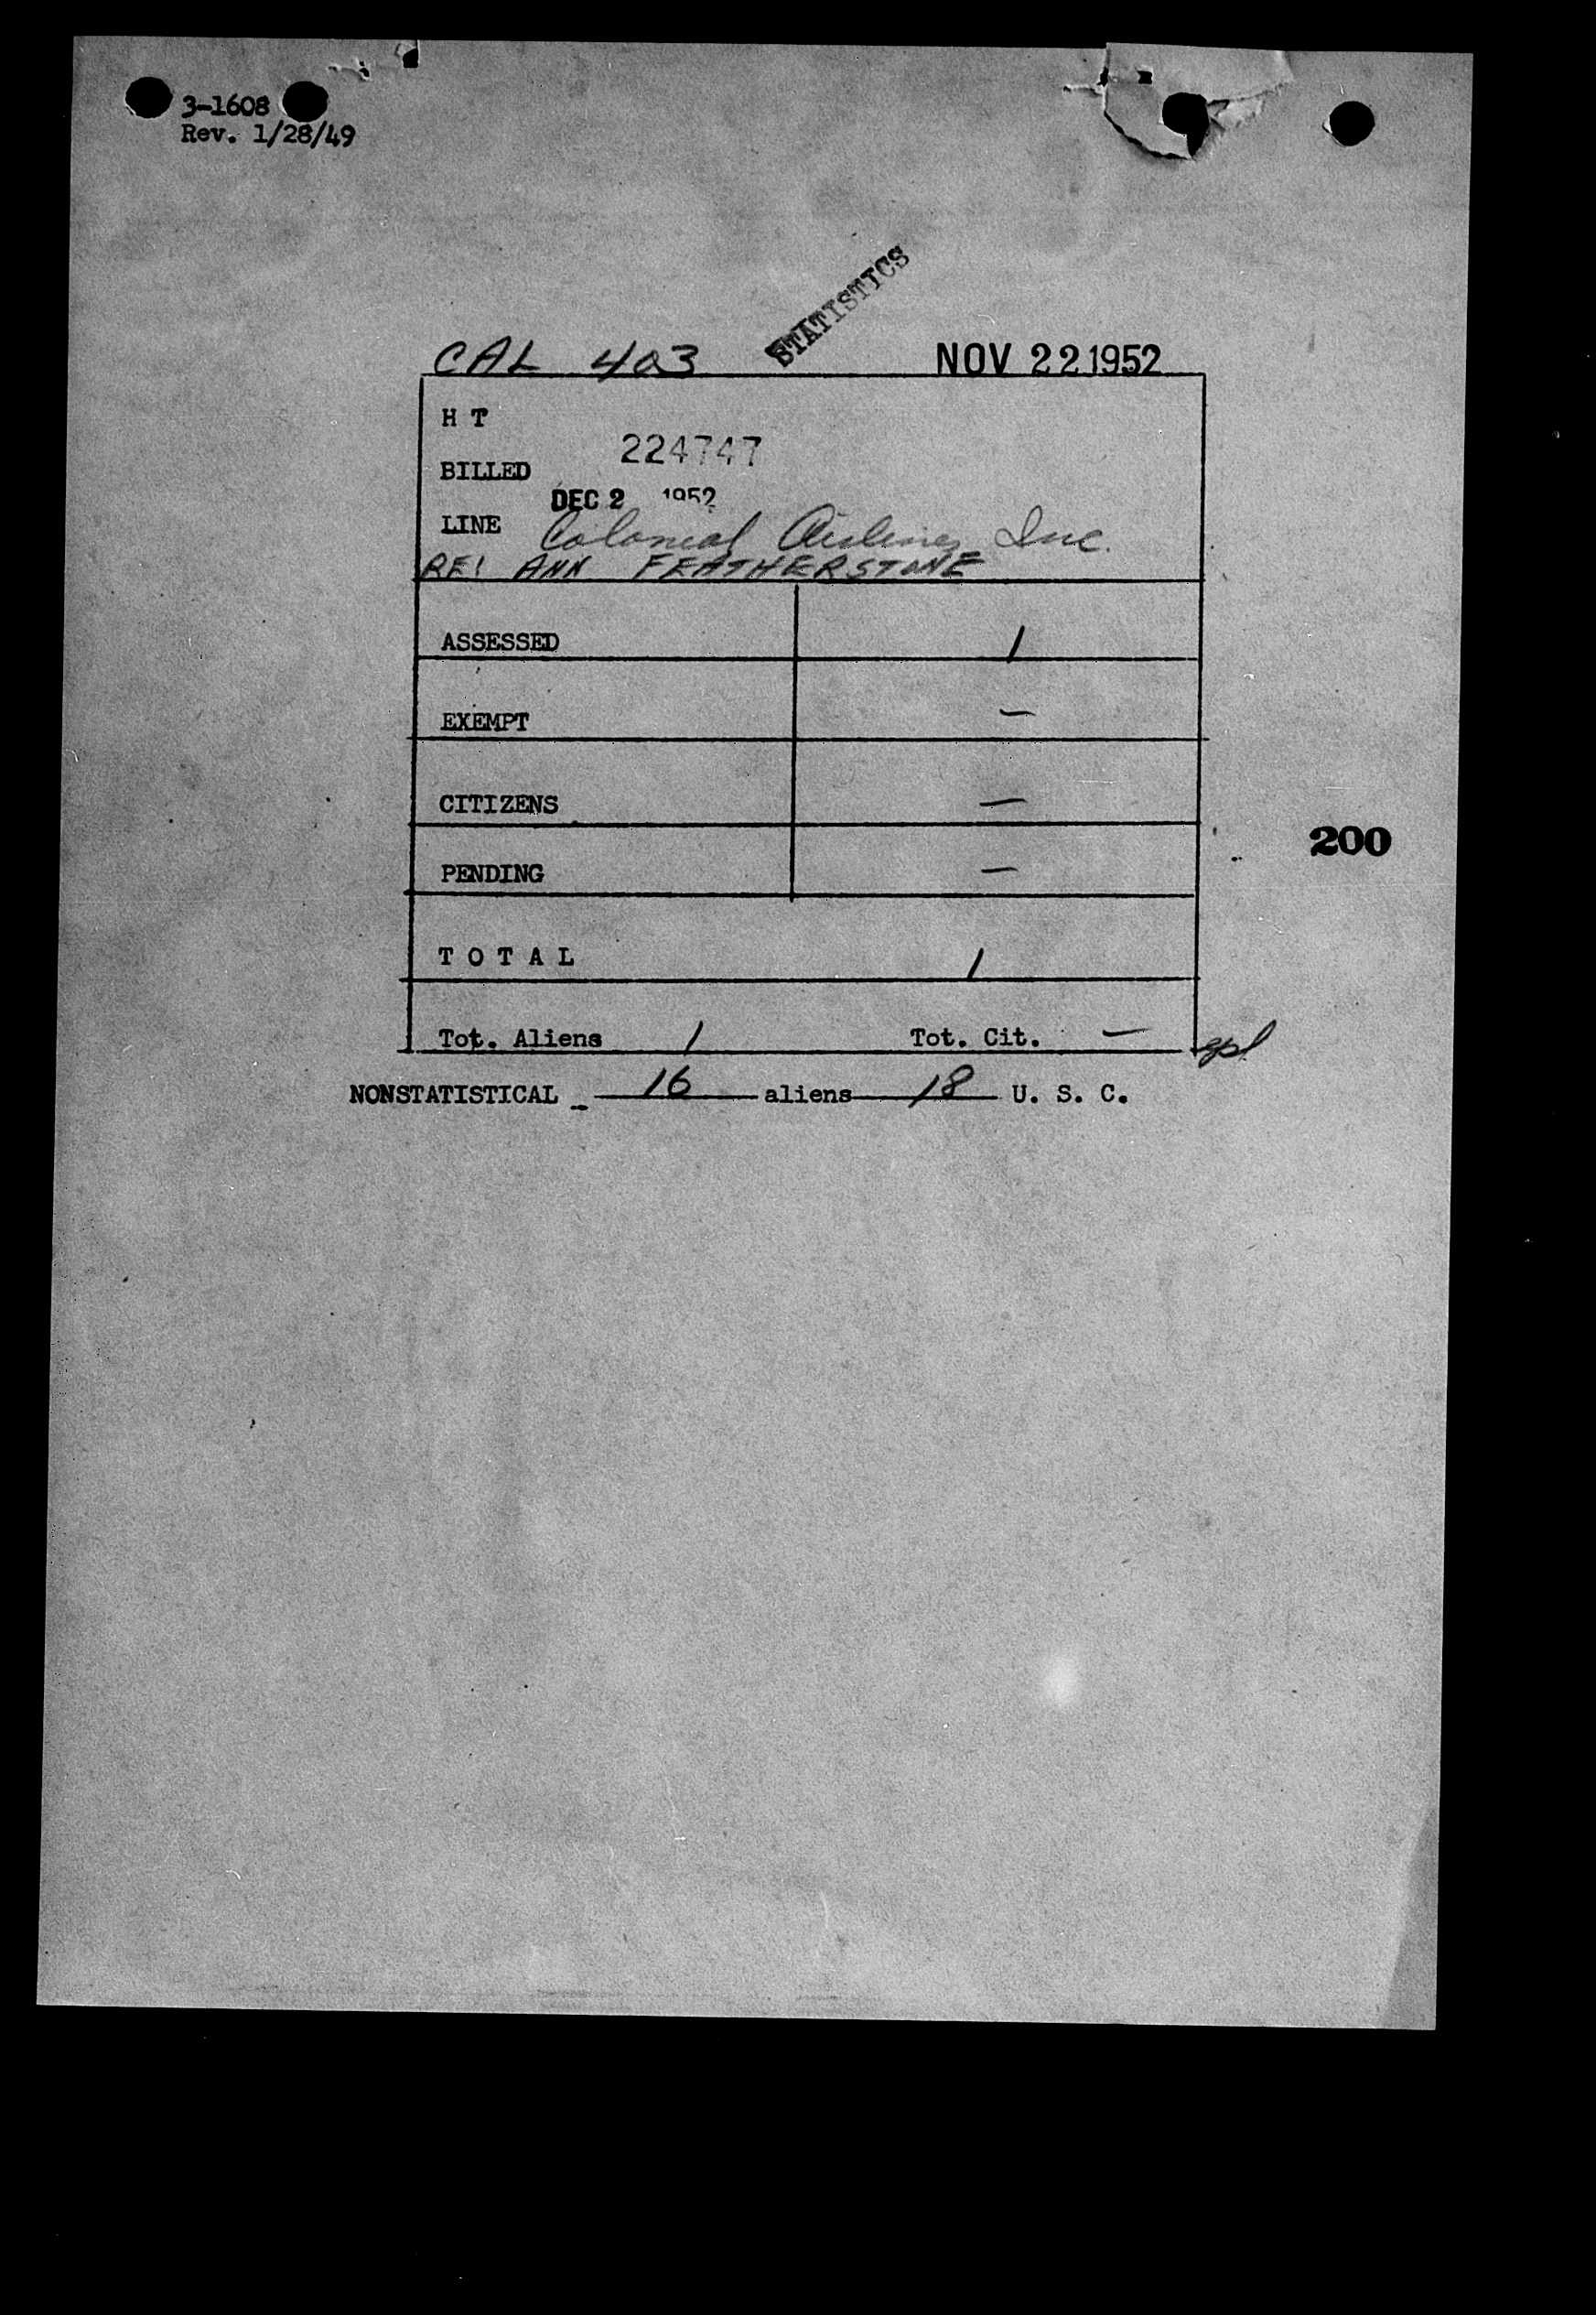 3-1608
Rev. 1/28/49
STATISTICS
CAL 403 NOV 22 1952
H T
224747
BILLED
DEC 2 1952
LINE Colonial Airlines Inc.
RE: ANN FEATHERSTONE
ASSESSED 1
EXEMPT —
CITIZENS —
200
PENDING —
T O T A L 1
Tot. Aliens 1 Tot. Cit. —
NONSTATISTICAL - 16 aliens 18 U. S. C.